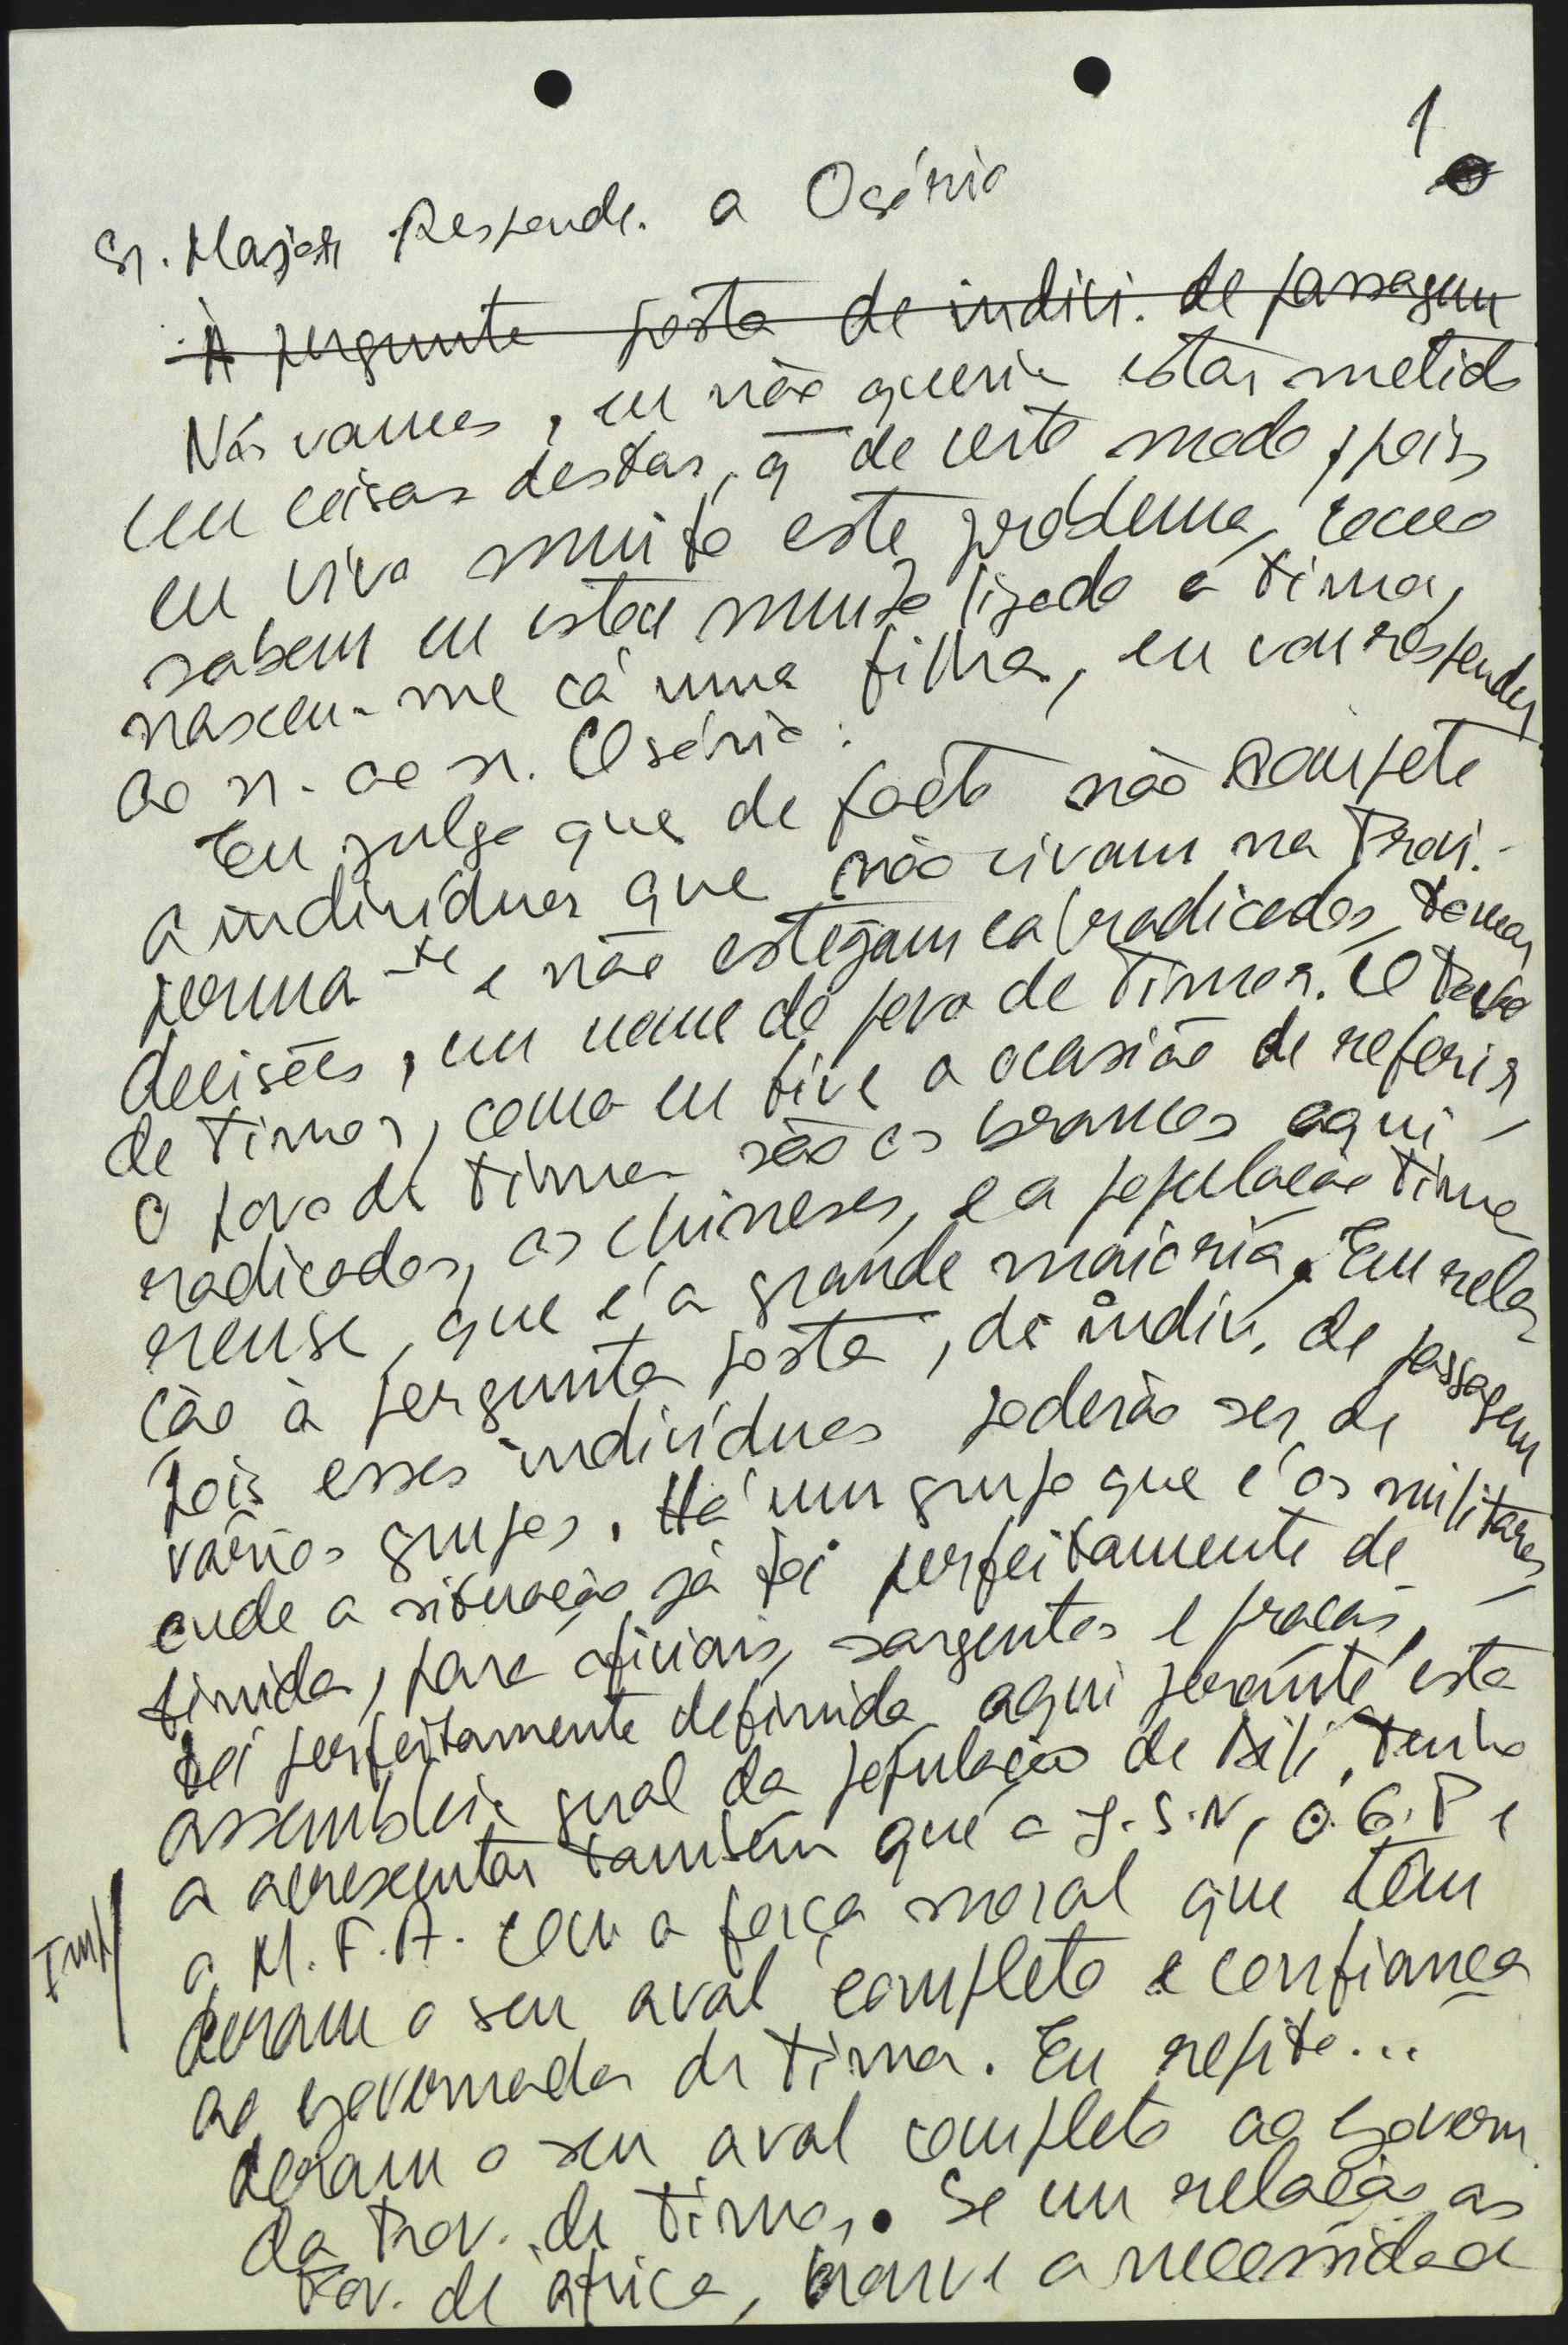 1
Sr. Major Responde. a Osório
À pergunta posta de indivi. de passagem
Nós vamos, eu não queria estar metido
em coisas destas, q̄ de certo modo, pois
eu vivo muito este problema, como
sabem eu estou muito ligado a Timor,
nasceu-me cá uma filha, eu vou responder
ao sr. ao sr. Osório:
Eu julgo que de facto não compete
a indivíduos que não vivam na Prov.
perma-te e não estejam cá radicados, tomar
decisões, em nome do povo de Timor. O Povo
de Timor, como eu tive a ocasião de referir,
o povo de Timor são os brancos aqui
radicados, os chineses, e a população Timo
rense, que é a grande maioria. Em rela
ção à pergunta posta, de indiv. de passagem
pois esses indivíduos poderão ser de
vários grupos. Há um grupo que é os militares,
onde a situação já foi perfeitamente de
finida, para oficiais, sargentos e praças,
foi perfeitamente definida aqui perante esta
assembleia geral da população de Dili, tenho
a acrescentar também que a J.S.N, o G.P e
Imp/
o M.F.A. com a força moral que têm
deram o seu aval completo e confiança
ao governador de Timor. Eu repito...
deram o seu aval completo ao Govern.
da Prov. de Timor. Se em relação as
Prov. de África, houve a necessidade